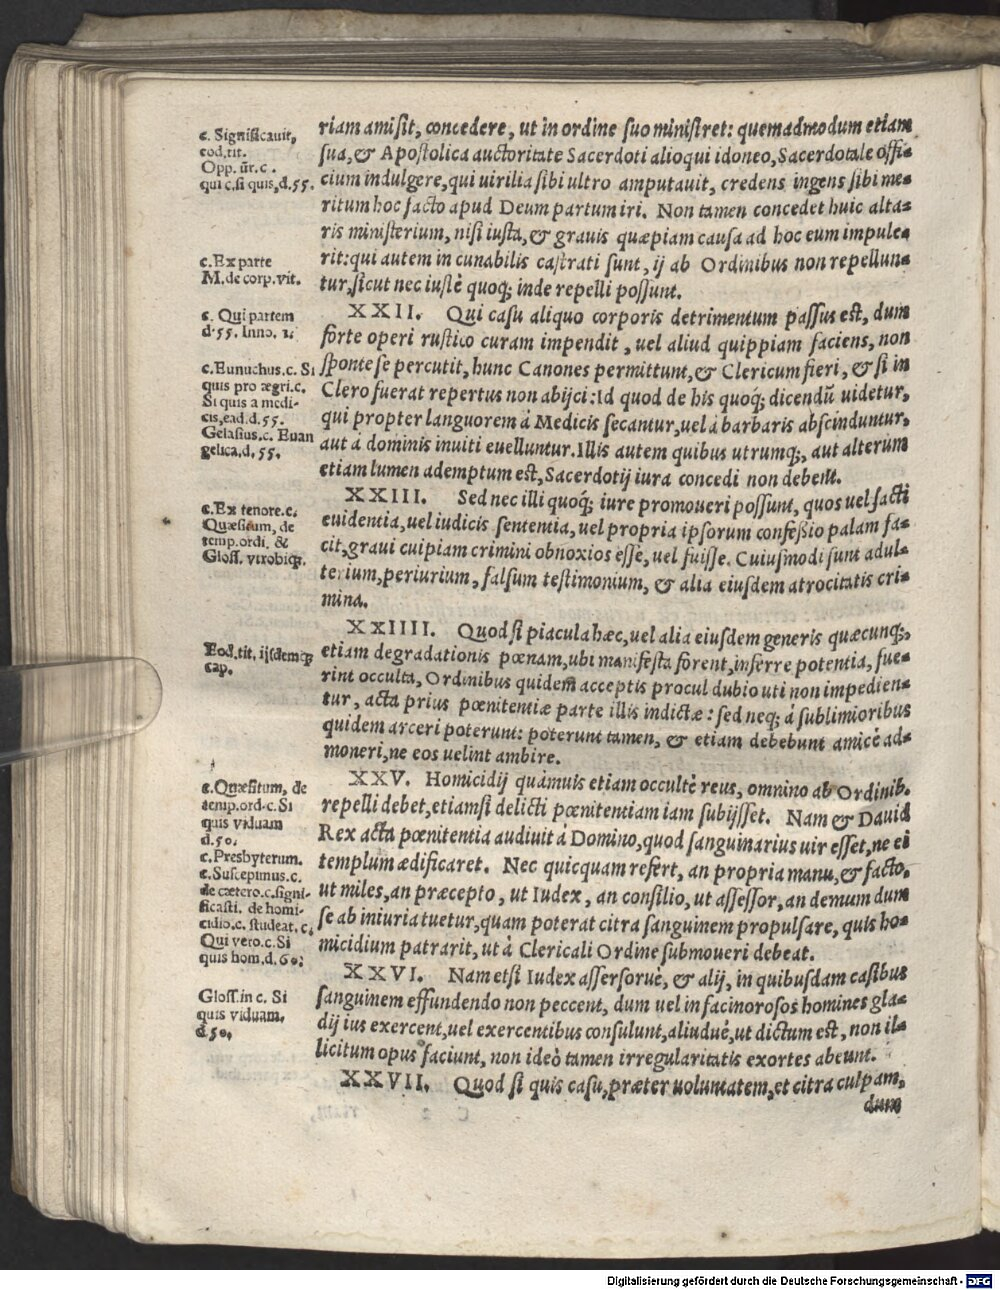 c. Significauit,
eod.tit.
Opp. ūr. c.
qui c.si quis,d.55.
riam amisit, concedere, ut in ordine suo ministret: quemadmodum etiam
sua,& Apostolica auctoritate Sacerdoti alioqui idoneo, Sacerdotale offi-
cium indulgere,qui uirilia sibi ultro amputauit, credens ingens sibi me-
ritum hoc facto apud Deum partum iri. Non tamen concedet huic alta-
ris ministerium, nisi iusta,& grauis quæpiam causa ad hoc eum impule-
c.Ex parte
M.de corp.vit.
rit:qui autem in cunabilis castrati sunt, ij ab Ordinibus non repellun-
tur,sicut nec iustè quoq; inde repelli possunt.
c. Qui partem
d.55. Inno. 1.
XXII. Qui casu aliquo corporis detrimentum passus est, dum
forte operi rustico curam impendit, uel aliud quippiam faciens, non
c.Eunuchus.c. Si
quis pro ægri.c.
Si quis a medi-
cis,ead.d.55.
Gelasius.c. Euan
gelica.d. 55.
sponte se percutit, hunc Canones permittunt,& Clericum fieri, & si in
Clero fuerat repertus non abijci: Id quod de his quoq; dicendū uidetur,
qui propter languorem à Medicis secantur,uel à barbaris abscinduntur,
aut à dominis inuiti euelluntur. Illis autem quibus utrumq;, aut alterum
etiam lumen ademptum est, Sacerdotij iura concedi non debent.
c.Ex tenore.c.
Quæsitum, de
temp.ordi. &
Gloss. vtrobiq;.
XXIII. Sed nec illi quoq; iure promoueri possunt, quos uel facti
euidentia,uel iudicis sententia, uel propria ipsorum confessio palam fa-
cit,graui cuipiam crimini obnoxios esse, uel fuisse. Cuiusmodi sunt adul-
terium,periurium, falsum testimonium, & alia eiusdem atrocitatis cri-
mina.
Eod.tit. ijsdemq;
cap.
XXIIII. Quod si piacula hæc,uel alia eiusdem generis quæcunq;,
etiam degradationis pœnam,ubi manifesta forent,inferre potentia, fue-
rint occulta, Ordinibus quidem acceptis procul dubio uti non impedien-
tur, acta prius pœnitentiæ parte illis indictæ: sed neq; à sublimioribus
quidem arceri poterunt: poterunt tamen, & etiam debebunt amicè ad-
moneri,ne eos uelint ambire.
c.Quæsitum, de
temp.ord.c. Si
quis viduam
d.50.
c.Presbyterum.
c.Suscepimus.c.
de cætero.c.signi-
ficasti. de homi-
cidio.c. studeat. c.
Qui vero.c. Si
quis hom.d.60.
XXV. Homicidij quámuis etiam occultè reus, omnino ab Ordinib.
repelli debet,etiamsi delicti pœnitentiam iam subijsset. Nam & Dauid
Rex acta pœnitentia audiuit à Domino,quod sanguinarius uir esset,ne ei
templum ædificaret. Nec quicquam refert, an propria manu,& facto,
ut miles, an præcepto, ut Iudex, an consilio, ut assessor, an demum dum
se ab iniuria tuetur,quam poterat citra sanguinem propulsare, quis ho-
micidium patrarit, ut à Clericali Ordine submoueri debeat.
Gloss.in c. Si
quis viduam,
d.50.
XXVI. Nam etsi Iudex assersorué, & alij, in quibusdam casibus
sanguinem effundendo non peccent, dum uel in facinorosos homines gla-
dij ius exercent,uel exercentibus consulunt,aliudué,ut dictum est, non il-
licitum opus faciunt, non ideò tamen irregularitatis exortes abeunt.
XXVII. Quod si quis casu,præter uoluntatem,et citra culpam,
dum
Digitalisierung gefördert durch die Deutsche Forschungsgemeinschaft - DFG